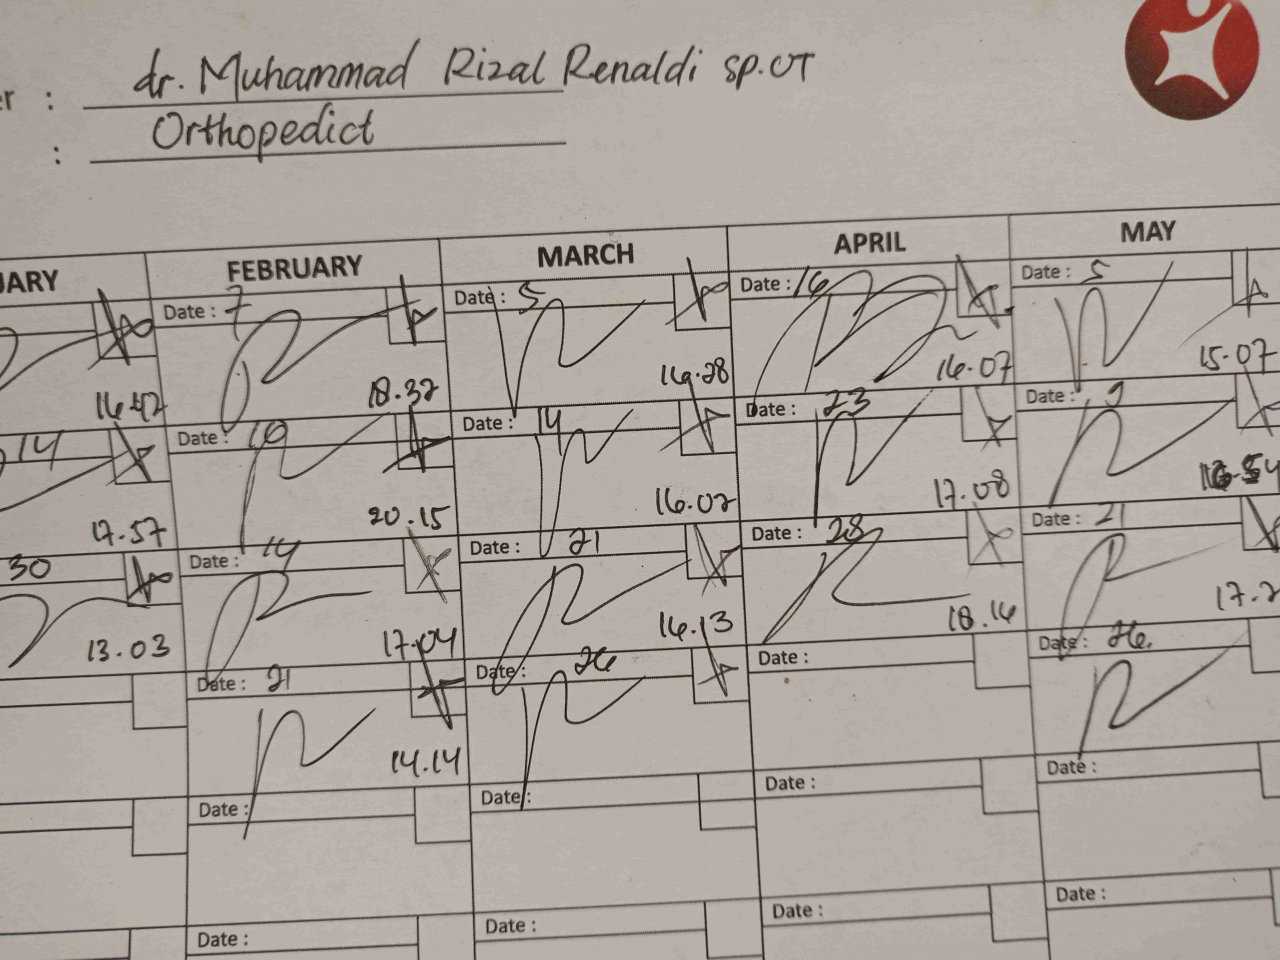 er : dr. Muhammad Rizal Renaldi sp.OT
: Orthopedict
UARY FEBRUARY MARCH APRIL MAY
Date : 7 Date : 5 Date : 16 Date : 5
16.42 18.32 16.28 16.07 15.07
14 Date : 10 Date : 14 Date : 23 Date : 9
17.57 20.15 16.02 17.08
30 Date : 14 Date : 21 Date : 28 Date : 21
13.03 17.04 16.13 18.16 17.2
Date : 21 Date : 26 Date : Date : 26.
14.14
Date : Date : Date : Date :
Date : Date : Date : Date :